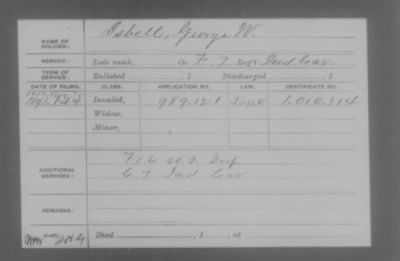 NAME OF SOLDIER: Isbell, George W.
SERVICE: Late rank, Co. F, 7 Reg't Ind Cav.
TERM OF SERVICE: Enlisted , 1 Discharged , 1
DATE OF FILING. CLASS. APPLICATION NO. LAW. CERTIFICATE NO.
1891, Feb 4 Invalid, 989.121 1.010.314
Widow,
Minor,
ADDITIONAL SERVICES: F 16 U.S. Inf
C 7 Ind Cav
REMARKS:
Died , 1 , at